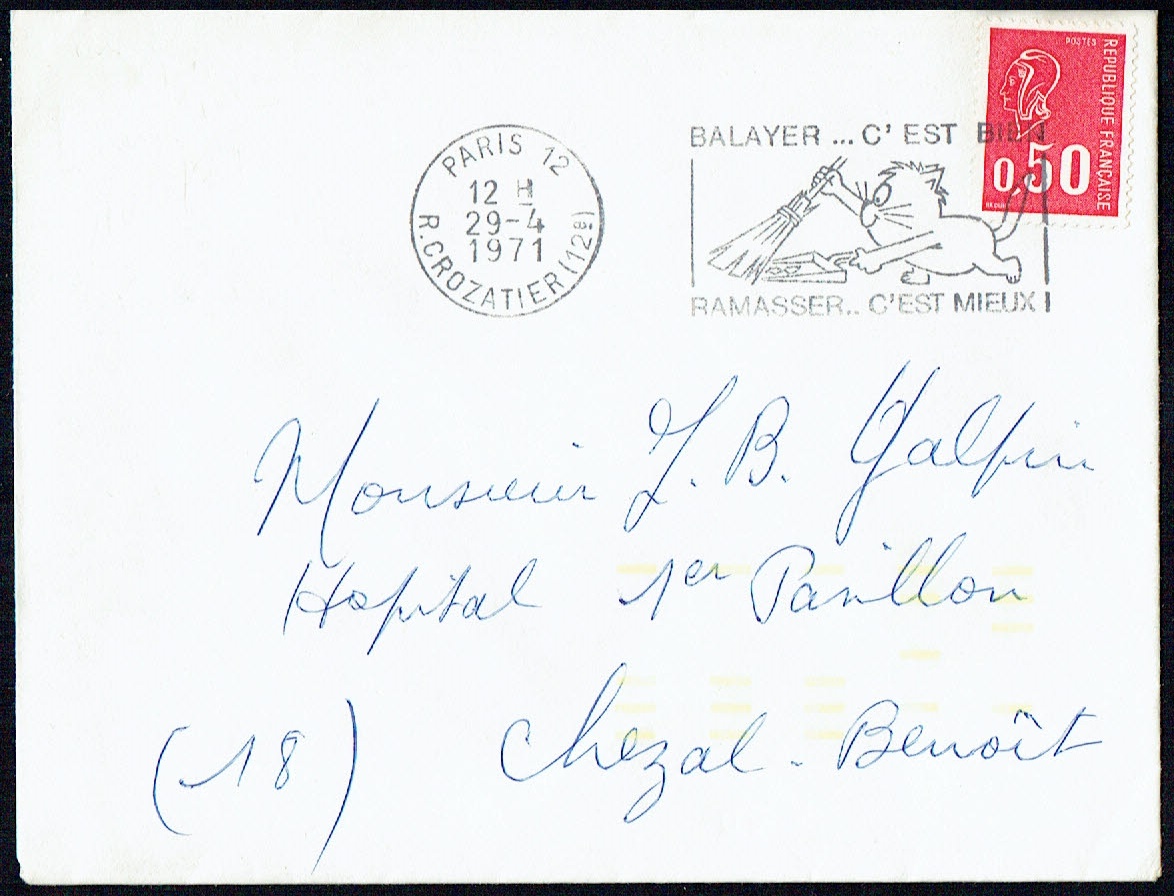 POSTES
REPUBLIQUE FRANÇAISE
0,50
PARIS 12
12 H
29-4
1971
R.CROZATIER (12e)
BALAYER ... C'EST BIEN
RAMASSER.. C'EST MIEUX !
Monsieur J. B. Galpin
Hopital 1er Pavillon
(18) Chezal-Benoît